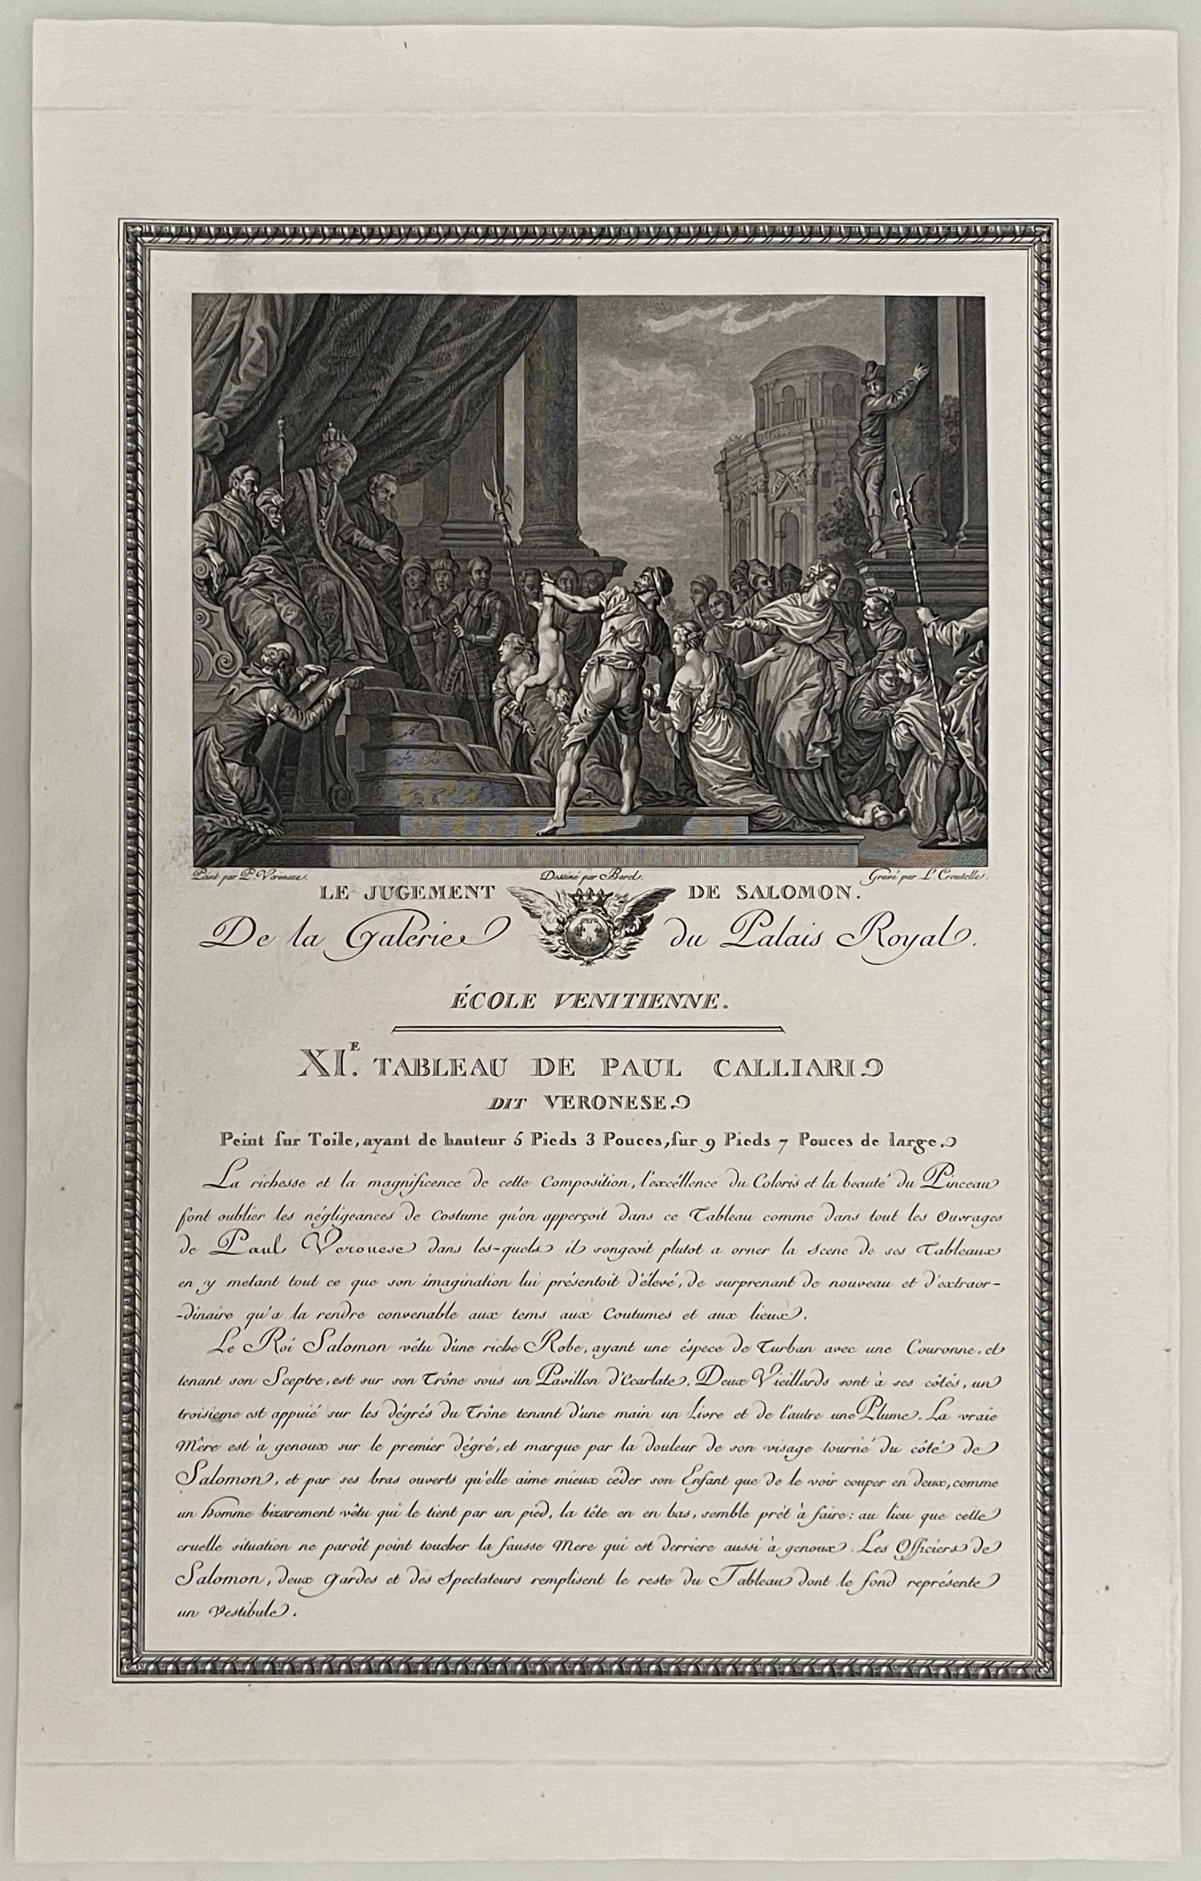 Peint par P. Veronese.
Dessiné par Borel.
Gravé par L. Croutelle.
LE JUGEMENT DE SALOMON.
De la Galerie du Palais Royal.
ÉCOLE VENITIENNE.
XI.E TABLEAU DE PAUL CALLIARI
DIT VERONESE.
Peint sur Toile, ayant de hauteur 5 Pieds 3 Pouces, sur 9 Pieds 7 Pouces de large.
La richesse et la magnificence de cette Composition, l'excéllence du Coloris et la beauté du Pinceau
font oublier les négligeances de Costume qu'on apperçoit dans ce Tableau comme dans tout les Ouvrages
de Paul Veronese dans les-quels il songeoit plutot a orner la Scene de ses Tableaux
en y metant tout ce que son imagination lui présentoit d'élevé, de surprenant de nouveau et d'extraor-
-dinaire qu'a la rendre convenable aux tems aux Coutumes et aux lieux.
Le Roi Salomon vêtu d'une riche Robe, ayant une éspece de Turban avec une Couronne, et
tenant son Sceptre, est sur son Trône sous un Pavillon d'Ecarlate. Deux Vieillards sont à ses côtés, un
troisieme est appuié sur les dégrés du Trône tenant d'une main un Livre et de l'autre une Plume. La vraie
Mêre est à genoux sur le premier dégré, et marque par la douleur de son visage tourné du côté de
Salomon, et par ses bras ouverts qu'elle aime mieux céder son Enfant que de le voir couper en deux, comme
un homme bizarement vêtu qui le tient par un pied, la tête en en bas, semble prêt à faire: au lieu que cette
cruelle situation ne paroît point toucher la fausse Mere qui est derriere aussi à genoux. Les Officiers de
Salomon, deux Gardes et des Spectateurs remplisent le reste du Tableau dont le fond représente
un Vestibule.